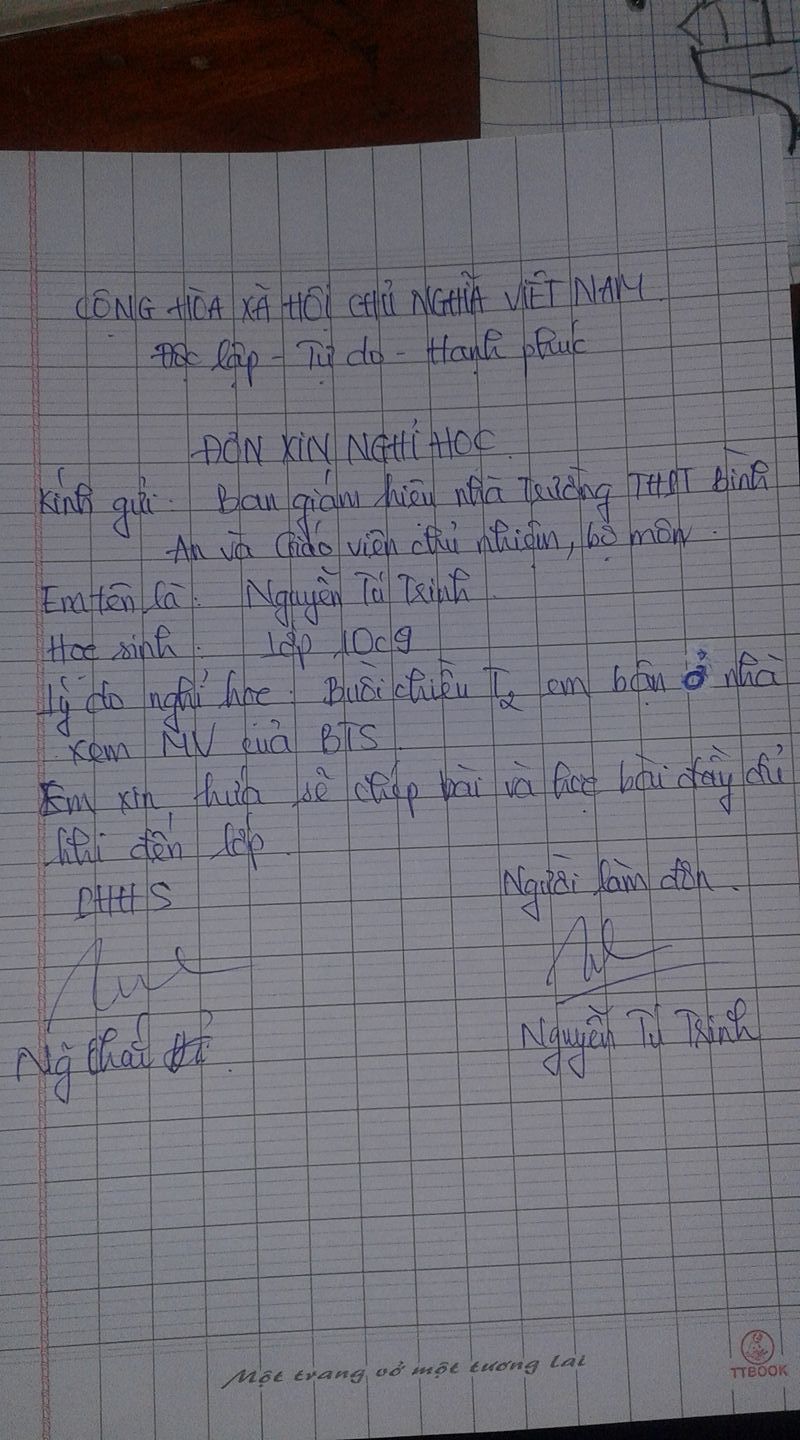 CỘNG HÒA XÃ HỘI CHỦ NGHĨA VIỆT NAM
Độc lập - Tự do - Hạnh phúc
ĐƠN XIN NGHỈ HỌC
Kính gửi: Ban giám hiệu nhà Trường THPT Bình
An và Giáo viên chủ nhiệm, bộ môn.
Em tên là: Nguyễn Tú Trinh
Học sinh: lớp 10c9
Lý do nghỉ học: Buổi chiều T2 em bận ở nhà
xem MV của BTS
Em xin hứa sẽ chép bài và học bài đầy đủ
khi đến lớp
PHHS
Người làm đơn
Nguyễn Tú Trinh
Ng~
Một trang vở một tương lai
TTBOOK